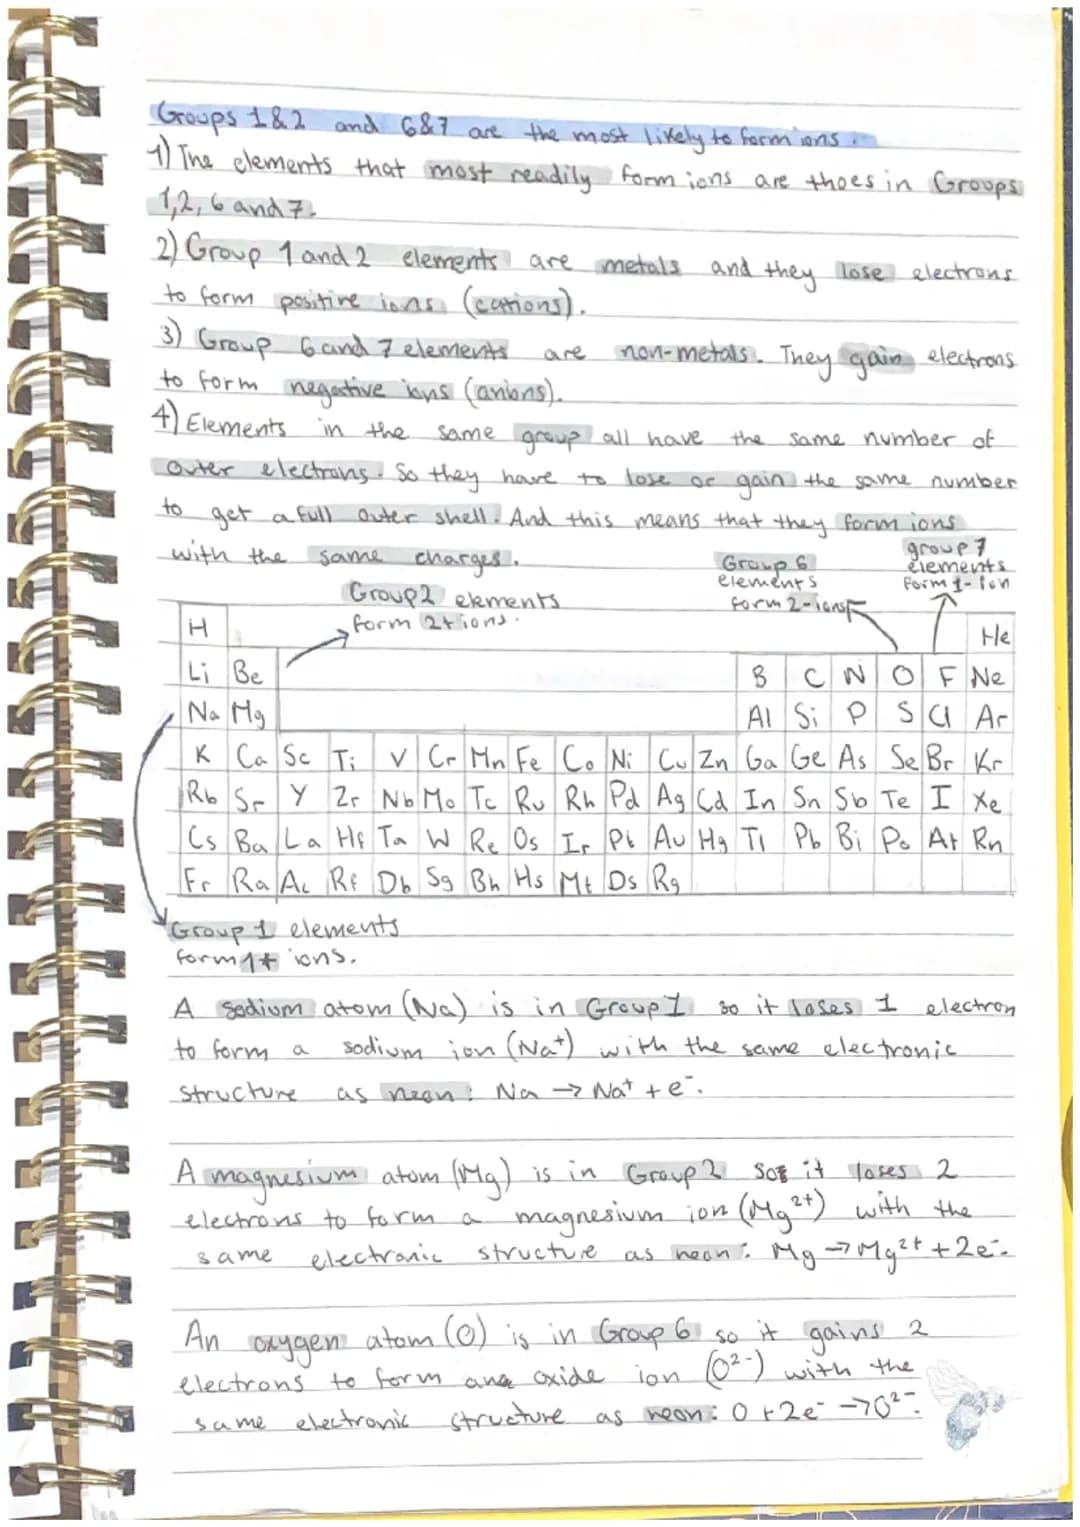 Groups 1&2 and 6&7 are the most likely to form ions.
1) The elements that most readily form ions are thoes in Groups
1,2, 6 and 7.
2) Group 1 and 2 elements are metals and they lose electrons
to form positive ions (cations).
3) Group 6 and 7 elements are non-metals. They gain electrons
to form negative ions (anions).
4) Elements in the same group all have the same number of
outer electrons. So they have to lose or gain the same number
to get a full outer shell. And this means that they form ions
with the same charges.
Group 6
elements
form 2- ions
group 7
elements
form 1- ion
Group 2 elements
form 2+ ions.
H He
Li Be B C N O F Ne
Na Mg Al Si P S Cl Ar
K Ca Sc Ti V Cr Mn Fe Co Ni Cu Zn Ga Ge As Se Br Kr
Rb Sr Y Zr Nb Mo Tc Ru Rh Pd Ag Cd In Sn Sb Te I Xe
Cs Ba La Hf Ta W Re Os Ir Pt Au Hg Tl Pb Bi Po At Rn
Fr Ra Ac Rf Db Sg Bh Hs Mt Ds Rg
Group 1 elements
form 1+ ions.
A sodium atom (Na) is in Group 1 so it loses 1 electron
to form a sodium ion (Na⁺) with the same electronic
structure as neon: Na → Na⁺ + e⁻.
A magnesium atom (Mg) is in Group 2 so it loses 2
electrons to form a magnesium ion (Mg²⁺) with the
same electronic structure as neon: Mg → Mg²⁺ + 2e⁻.
An oxygen atom (O) is in Group 6 so it gains 2
electrons to form an oxide ion (O²⁻) with the
same electronic structure as neon: O + 2e⁻ → O²⁻.